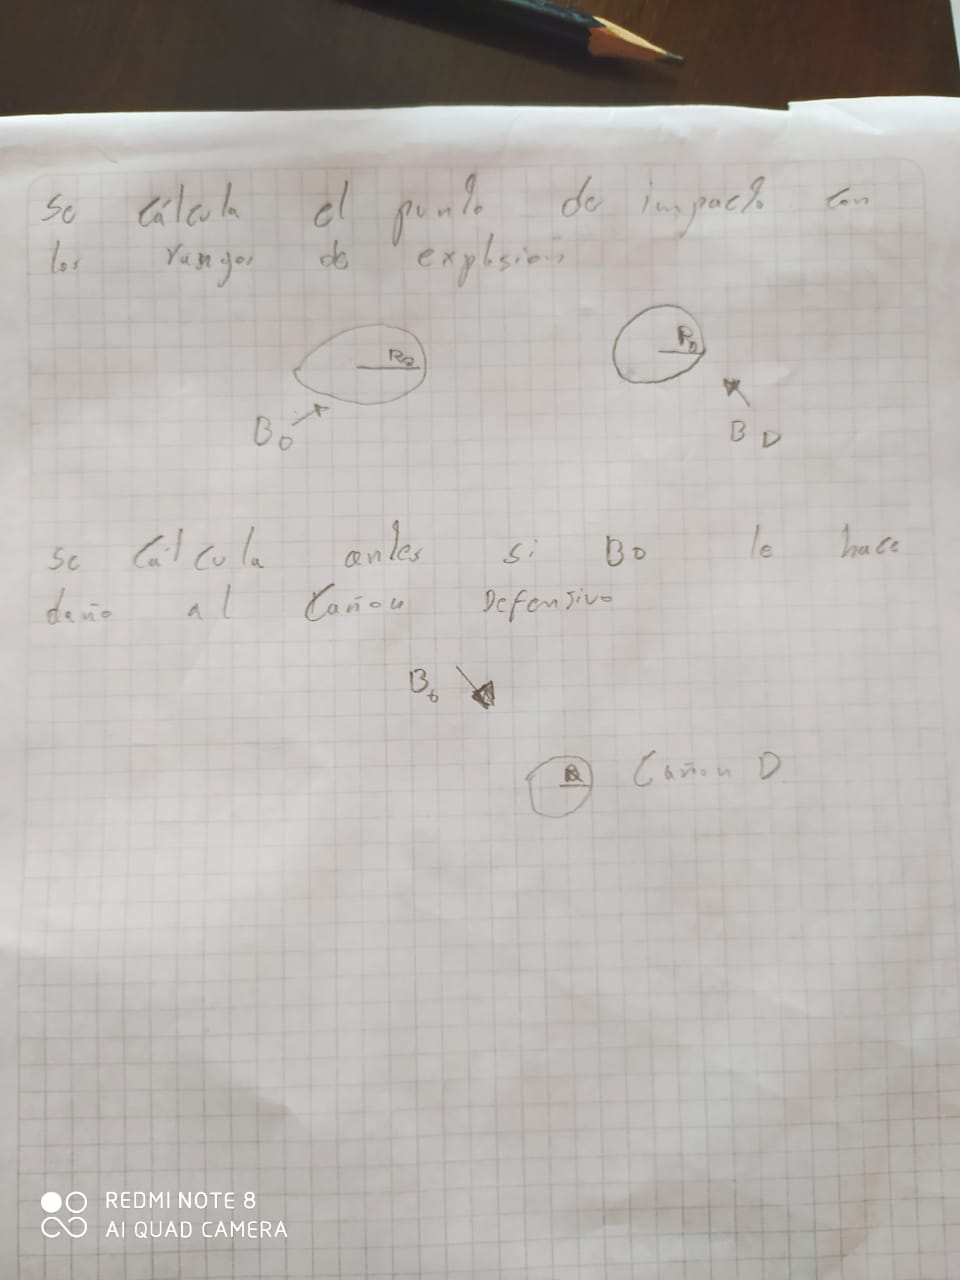 Se cálcula el punto de impacto con
los rangos de explosion
Ro
RD
Bo
BD
se Cálcula antes si Bo le hace
daño al Cañon Defensivo
Bo
R Cañon D
REDMI NOTE 8
AI QUAD CAMERA